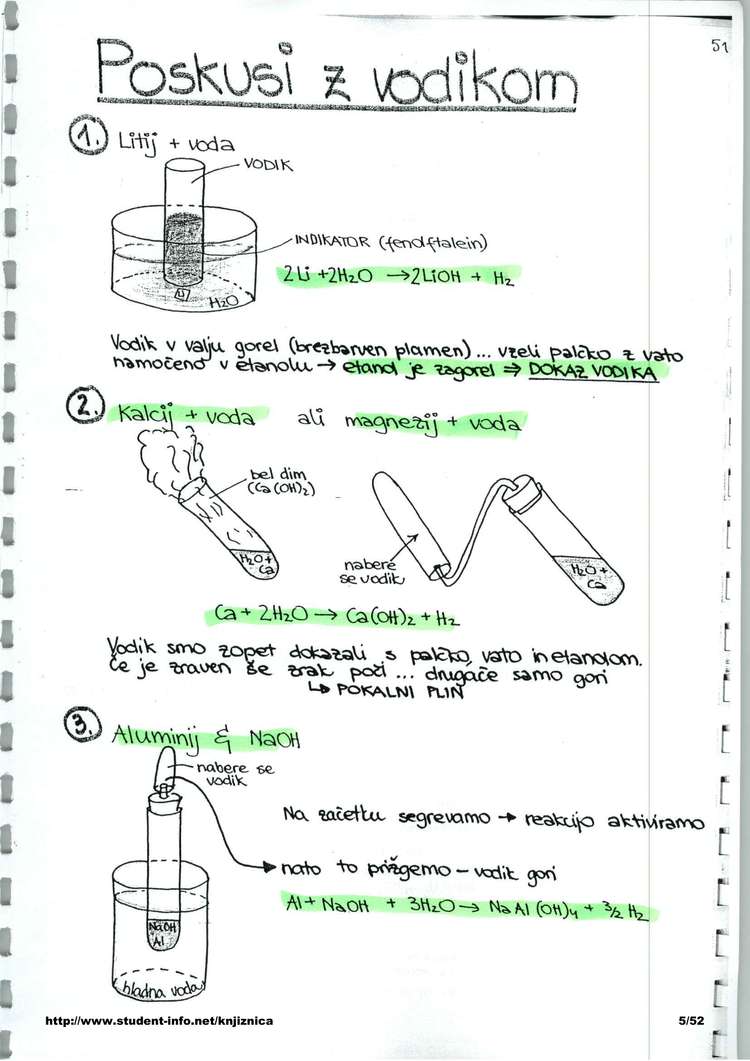 51
Poskusi z vodikom
1. Litij + voda
VODIK
INDIKATOR (fenolftalein)
2Li + 2H₂O → 2LiOH + H₂
Li
H₂O
Vodik v valju gorel (brezbarven plamen)... vzeli palčko z vato
namočeno v etanolu → etanol je zagorel ⇒ DOKAZ VODIKA
2. Kalcij + voda ali magnezij + voda
bel dim
(Ca(OH)₂)
H₂O +
Ca
nabere
se vodik
H₂O +
Ca
Ca + 2H₂O → Ca(OH)₂ + H₂
Vodik smo zopet dokazali s palčko, vato in etanolom.
Če je zraven še zrak poči ... drugače samo gori
↳ POKALNI PLIN
3. Aluminij & NaOH
nabere se
vodik
Na začetku segrevamo → reakcijo aktiviramo
nato to prižgemo – vodik gori
Al + NaOH + 3H₂O → NaAl(OH)₄ + 3/2 H₂
NaOH
Al
hladna voda
http://www.student-info.net/knjiznica 5/52